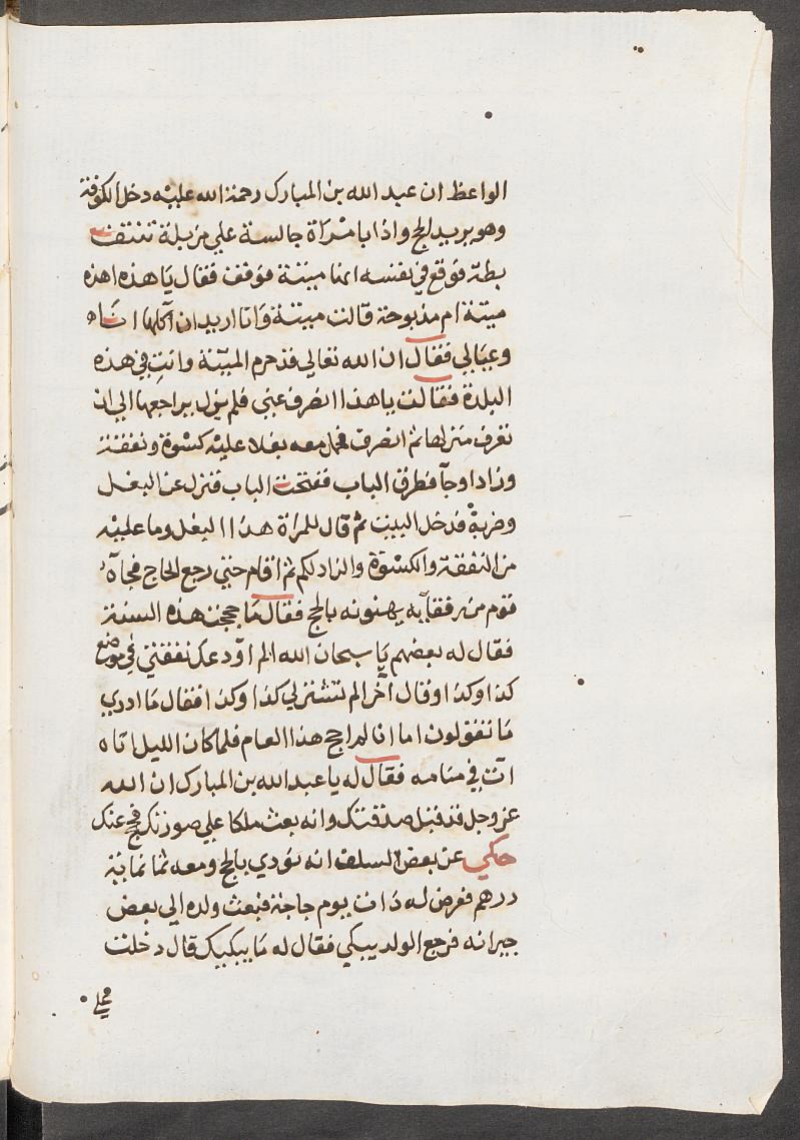 الواعظ ان عبد الله بن المبارك رحمة الله عليه دخل الكوفة
وهو يريد الحج واذا بامراة جالسة علي مزبلة تنتف
بطة فوقع في نفسه انها ميتة فوقف فقال يا هذه اهذه
ميتة ام مذبوحة قالت ميتة وانا اريد ان آكلها انا
وعيالي فقال ان الله تعالي قد حرم الميتة وانتِ في هذه
البلدة فقالت يا هذا انصرف عني فلم يزل يراجعها الي ان
تعرف منزلها ثم انصرف فحمل معه بغلا عليه كسوة ونفقة
وزادا وجآ فطرق الباب ففتحت الباب فنزل عن البغل
وضربهُ فدخل البيت ثم قال للمراة هذا البغل وما عليه
من النفقة والكسوة والزاد لكم ثم اقام حتي رجع الحاج فجآه
قوم من رفقآيه يهنونه بالحج فقال ما حججت هذه السنة
فقال له بعضهم يا سبحان الله الم اودعك نفقتي في موضع
كذا وكذا وقال آخر الم تشتر لي كذا وكذا فقال ما ادري
ما تقولون اما انا لم احج هذا العام فلما كان الليل اتاه
ات في منامه فقال له يا عبد الله بن المبارك ان الله
عز وجل قد قبل صدقتك وانه بعث ملكا علي صورتك فحج عنك
حكي عن بعض السلف انه نودي بالحج ومعه ثمانماية
درهم فعرض له ذات يوم حاجة فبعث ولده الي بعض
جيرانه فرجع الولد يبكي فقال له ما يبكيك قال دخلت